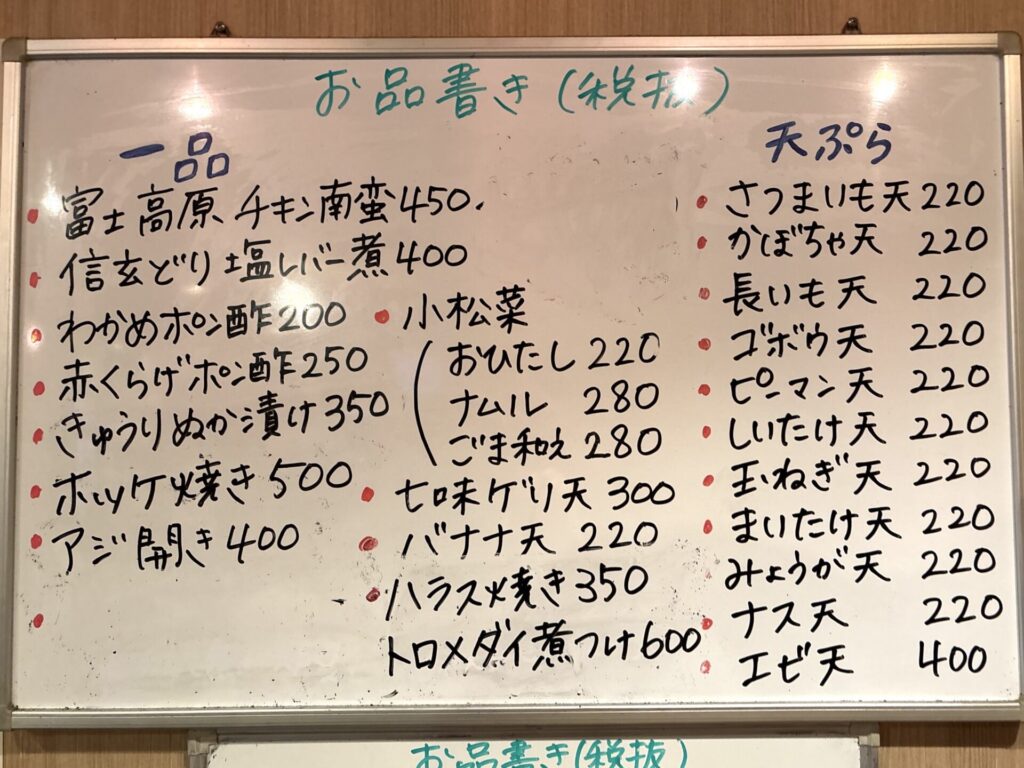 お品書き(税抜)
一品
富士高原 チキン南蛮 450.
信玄どり 塩レバー煮 400
わかめポン酢 200
赤くらげポン酢 250
きゅうりぬか漬け 350
ホッケ焼き 500
アジ開き 400
小松菜
おひたし 220
ナムル 280
ごま和え 280
七味ゲソ天 300
バナナ天 220
ハラス焼き 350
トロメダイ煮つけ 600
天ぷら
さつまいも天 220
かぼちゃ天 220
長いも天 220
ゴボウ天 220
ピーマン天 220
しいたけ天 220
玉ねぎ天 220
まいたけ天 220
みょうが天 220
ナス天 220
エビ天 400
お品書き(税抜)